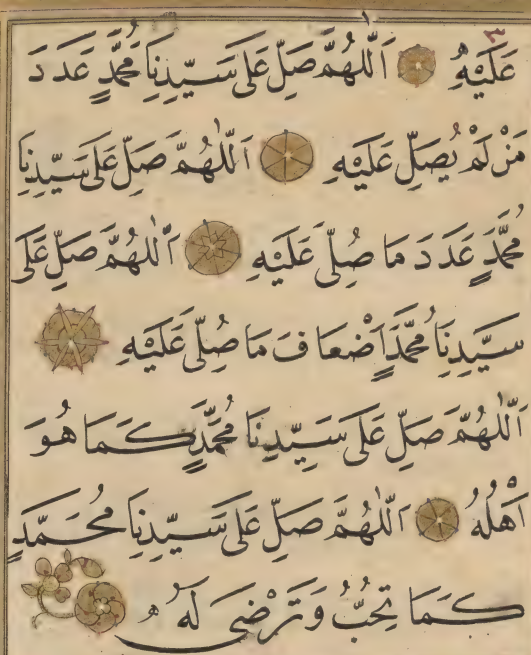 عَلَيْهِ اَللّٰهُمَّ صَلِّ عَلٰى سَيِّدِنَا مُحَمَّدٍ عَدَدَ
مَنْ لَمْ يُصَلِّ عَلَيْهِ اَللّٰهُمَّ صَلِّ عَلٰى سَيِّدِنَا
مُحَمَّدٍ عَدَدَ مَا صُلِّيَ عَلَيْهِ اَللّٰهُمَّ صَلِّ عَلٰى
سَيِّدِنَا مُحَمَّدٍ اَضْعَافَ مَا صُلِّيَ عَلَيْهِ
اَللّٰهُمَّ صَلِّ عَلٰى سَيِّدِنَا مُحَمَّدٍ كَمَا هُوَ
اَهْلُهُ اَللّٰهُمَّ صَلِّ عَلٰى سَيِّدِنَا مُحَمَّدٍ
كَمَا تُحِبُّ وَتَرْضٰى لَهُ